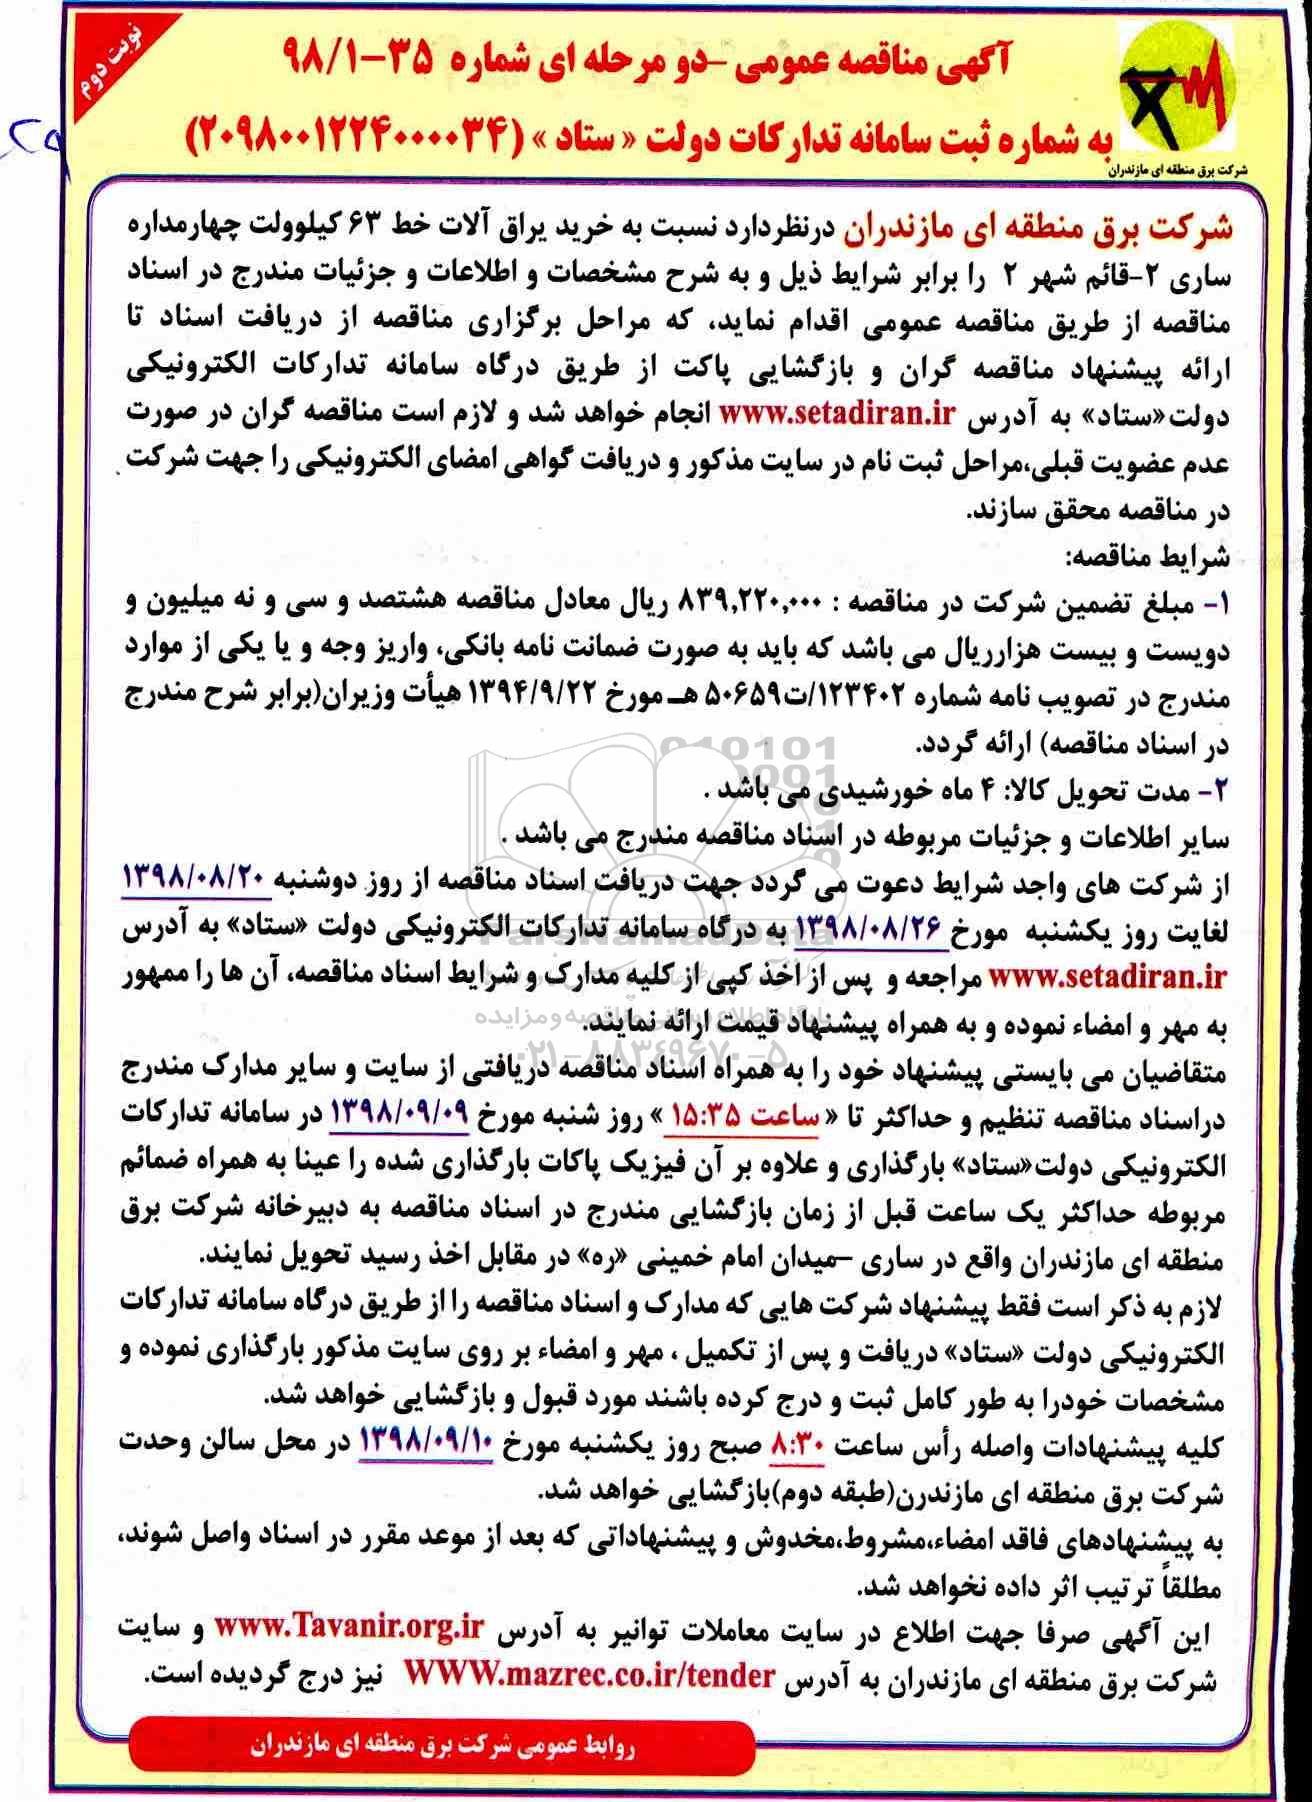 نوبت دوم
آگهی مناقصه عمومی –دو مرحله ای شماره ۳۵-۹۸/۱
به شماره ثبت سامانه تدارکات دولت « ستاد » (۲۰۹۸۰۰۱۲۲۴۰۰۰۰۳۴)
شرکت برق منطقه ای مازندران
شرکت برق منطقه ای مازندران درنظردارد نسبت به خرید یراق آلات خط ۶۳ کیلوولت چهارمداره
ساری ۲-قائم شهر ۲ را برابر شرایط ذیل و به شرح مشخصات و اطلاعات و جزئیات مندرج در اسناد
مناقصه از طریق مناقصه عمومی اقدام نماید، که مراحل برگزاری مناقصه از دریافت اسناد تا
ارائه پیشنهاد مناقصه گران و بازگشایی پاکت از طریق درگاه سامانه تدارکات الکترونیکی
دولت«ستاد» به آدرس www.setadiran.ir انجام خواهد شد و لازم است مناقصه گران در صورت
عدم عضویت قبلی،مراحل ثبت نام در سایت مذکور و دریافت گواهی امضای الکترونیکی را جهت شرکت
در مناقصه محقق سازند.
شرایط مناقصه:
۱- مبلغ تضمین شرکت در مناقصه : ۸۳۹,۲۲۰,۰۰۰ ریال معادل مناقصه هشتصد و سی و نه میلیون و
دویست و بیست هزارریال می باشد که باید به صورت ضمانت نامه بانکی، واریز وجه و یا یکی از موارد
مندرج در تصویب نامه شماره ۱۲۳۴۰۲/ت۵۰۶۵۹ هـ مورخ ۱۳۹۴/۹/۲۲ هیأت وزیران(برابر شرح مندرج
در اسناد مناقصه) ارائه گردد.
۲- مدت تحویل کالا: ۴ ماه خورشیدی می باشد .
سایر اطلاعات و جزئیات مربوطه در اسناد مناقصه مندرج می باشد .
از شرکت های واجد شرایط دعوت می گردد جهت دریافت اسناد مناقصه از روز دوشنبه ۱۳۹۸/۰۸/۲۰
لغایت روز یکشنبه مورخ ۱۳۹۸/۰۸/۲۶ به درگاه سامانه تدارکات الکترونیکی دولت «ستاد» به آدرس
www.setadiran.ir مراجعه و پس از اخذ کپی از کلیه مدارک و شرایط اسناد مناقصه، آن ها را ممهور
به مهر و امضاء نموده و به همراه پیشنهاد قیمت ارائه نمایند.
متقاضیان می بایستی پیشنهاد خود را به همراه اسناد مناقصه دریافتی از سایت و سایر مدارک مندرج
دراسناد مناقصه تنظیم و حداکثر تا « ساعت ۱۵:۳۵ » روز شنبه مورخ ۱۳۹۸/۰۹/۰۹ در سامانه تدارکات
الکترونیکی دولت«ستاد» بارگذاری و علاوه بر آن فیزیک پاکات بارگذاری شده را عینا به همراه ضمائم
مربوطه حداکثر یک ساعت قبل از زمان بازگشایی مندرج در اسناد مناقصه به دبیرخانه شرکت برق
منطقه ای مازندران واقع در ساری –میدان امام خمینی «ره» در مقابل اخذ رسید تحویل نمایند.
لازم به ذکر است فقط پیشنهاد شرکت هایی که مدارک و اسناد مناقصه را از طریق درگاه سامانه تدارکات
الکترونیکی دولت «ستاد» دریافت و پس از تکمیل ، مهر و امضاء بر روی سایت مذکور بارگذاری نموده و
مشخصات خودرا به طور کامل ثبت و درج کرده باشند مورد قبول و بازگشایی خواهد شد.
کلیه پیشنهادات واصله رأس ساعت ۸:۳۰ صبح روز یکشنبه مورخ ۱۳۹۸/۰۹/۱۰ در محل سالن وحدت
شرکت برق منطقه ای مازندرن(طبقه دوم)بازگشایی خواهد شد.
به پیشنهادهای فاقد امضاء،مشروط،مخدوش و پیشنهاداتی که بعد از موعد مقرر در اسناد واصل شوند،
مطلقاً ترتیب اثر داده نخواهد شد.
این آگهی صرفا جهت اطلاع در سایت معاملات توانیر به آدرس www.Tavanir.org.ir و سایت
شرکت برق منطقه ای مازندران به آدرس WWW.mazrec.co.ir/tender نیز درج گردیده است.
روابط عمومی شرکت برق منطقه ای مازندران
ParsNamadData
پایگاه اطلاع رسانی مناقصه و مزایده
۰۲۱-۸۸۳۴۹۶۷۰-۵